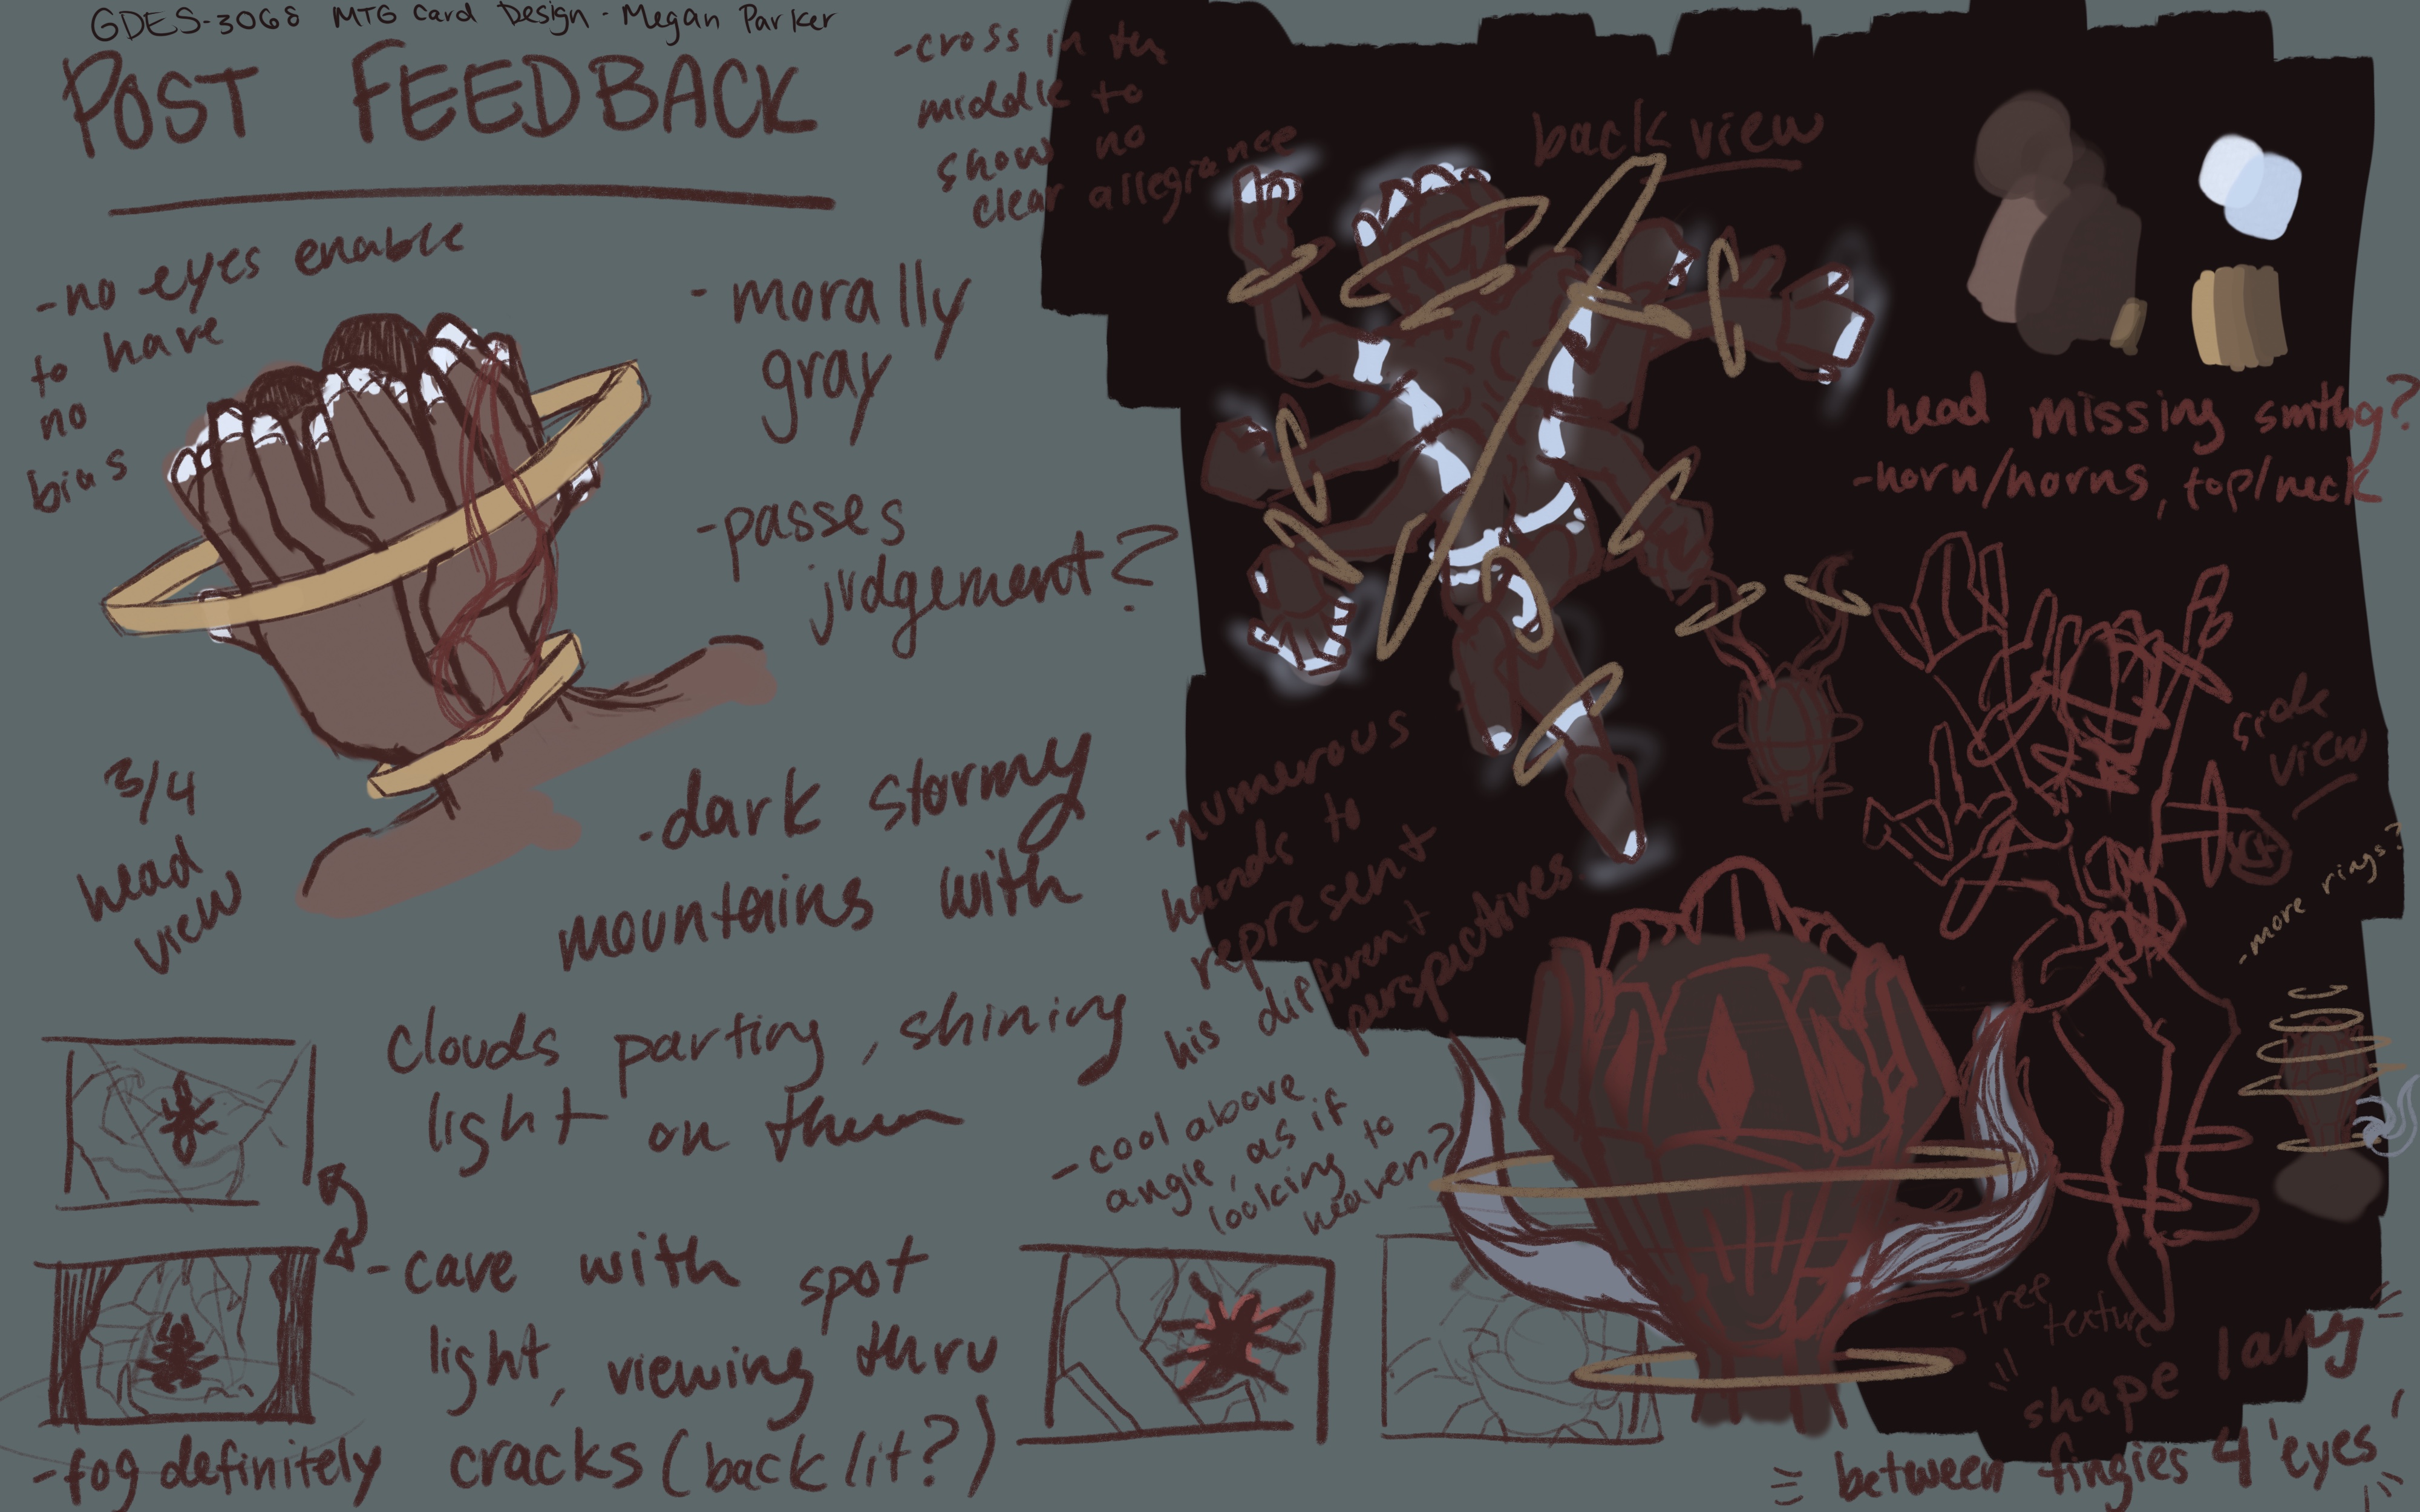 GDES-3068 MTG Card Design - Megan Parker
POST FEEDBACK
-no eyes enable
to have
no
bias
-morally
gray
-passes
judgement?
3/4
head
view
-dark stormy
mountains with
clouds parting, shining
light on them
-cave with spot
light, viewing thru
cracks (back lit?)
-fog definitely
-cross in the
middle to
show no
clear allegiance
back view
head missing smthg?
-horn/horns, top/neck
side
view
-more rings?
-numerous
hands to
represent
his different
perspectives
-cool above
angle, as if
looking to
heaven?
-tree
texture
shape lang
between fingies 4 'eyes'